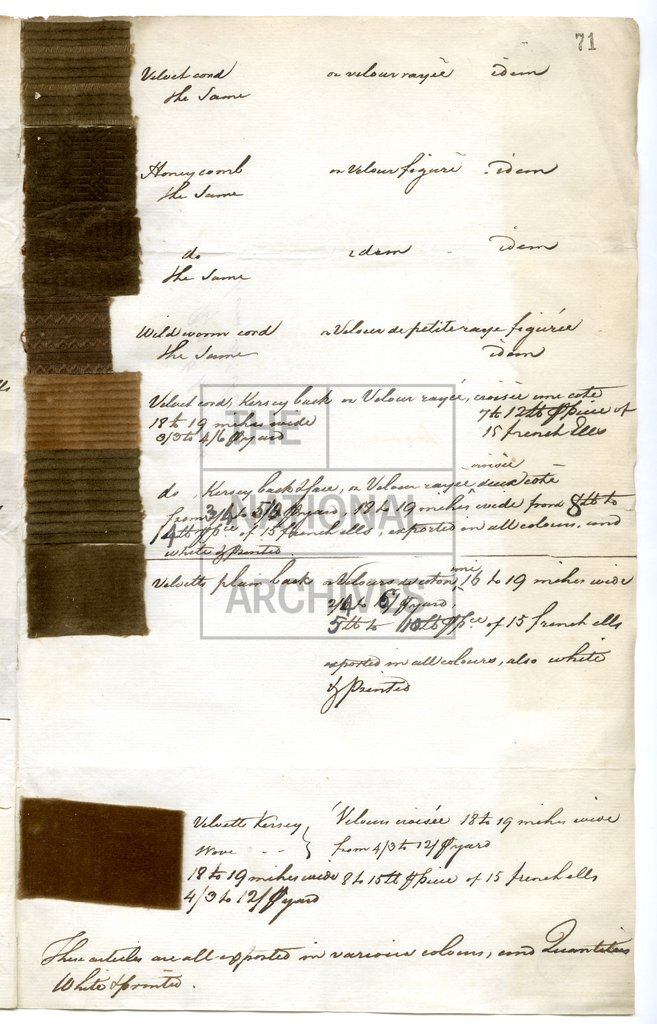 71
Velvet cord or velour rayée idem
the same
Honeycomb or velour figuré idem
the same
do idem - idem
the same
Wildworm cord or Velour de petite raye figuriée
the same idem
Velvet cord, Kersey back or Velour rayée, croisée une coté
18 to 19 inches wide 7 to 12lb ⅌ piece of
3/3 to 4/6 ⅌ yard 15 french Ells
croisée
do Kersey back & face, or Velour rayée deux coté
from 3/4 to 5/3 ⅌ yard, 18 to 19 inches wide from 8lb to
14lb ⅌ pce of 15 french ells, exported in all colours, and
white & printed
uni
Velvetts plain back or Velours coton 16 to 19 inches wide
⅌ yard
5lb to 10lb ⅌ pce of 15 french ells
exported in all colours, also white
& printed
Velvetts Kersey } Velours croisée 18 to 19 inches wide
wove - - } from 4/3 to 12/ ⅌ yard
18 to 19 inches wide 8 to 15lb ⅌ piece of 15 french ells
4/3 to 12/ ⅌ yard
These articles are all exported in various colours, and Quantities
White & printed.
THE
NATIONAL
ARCHIVES